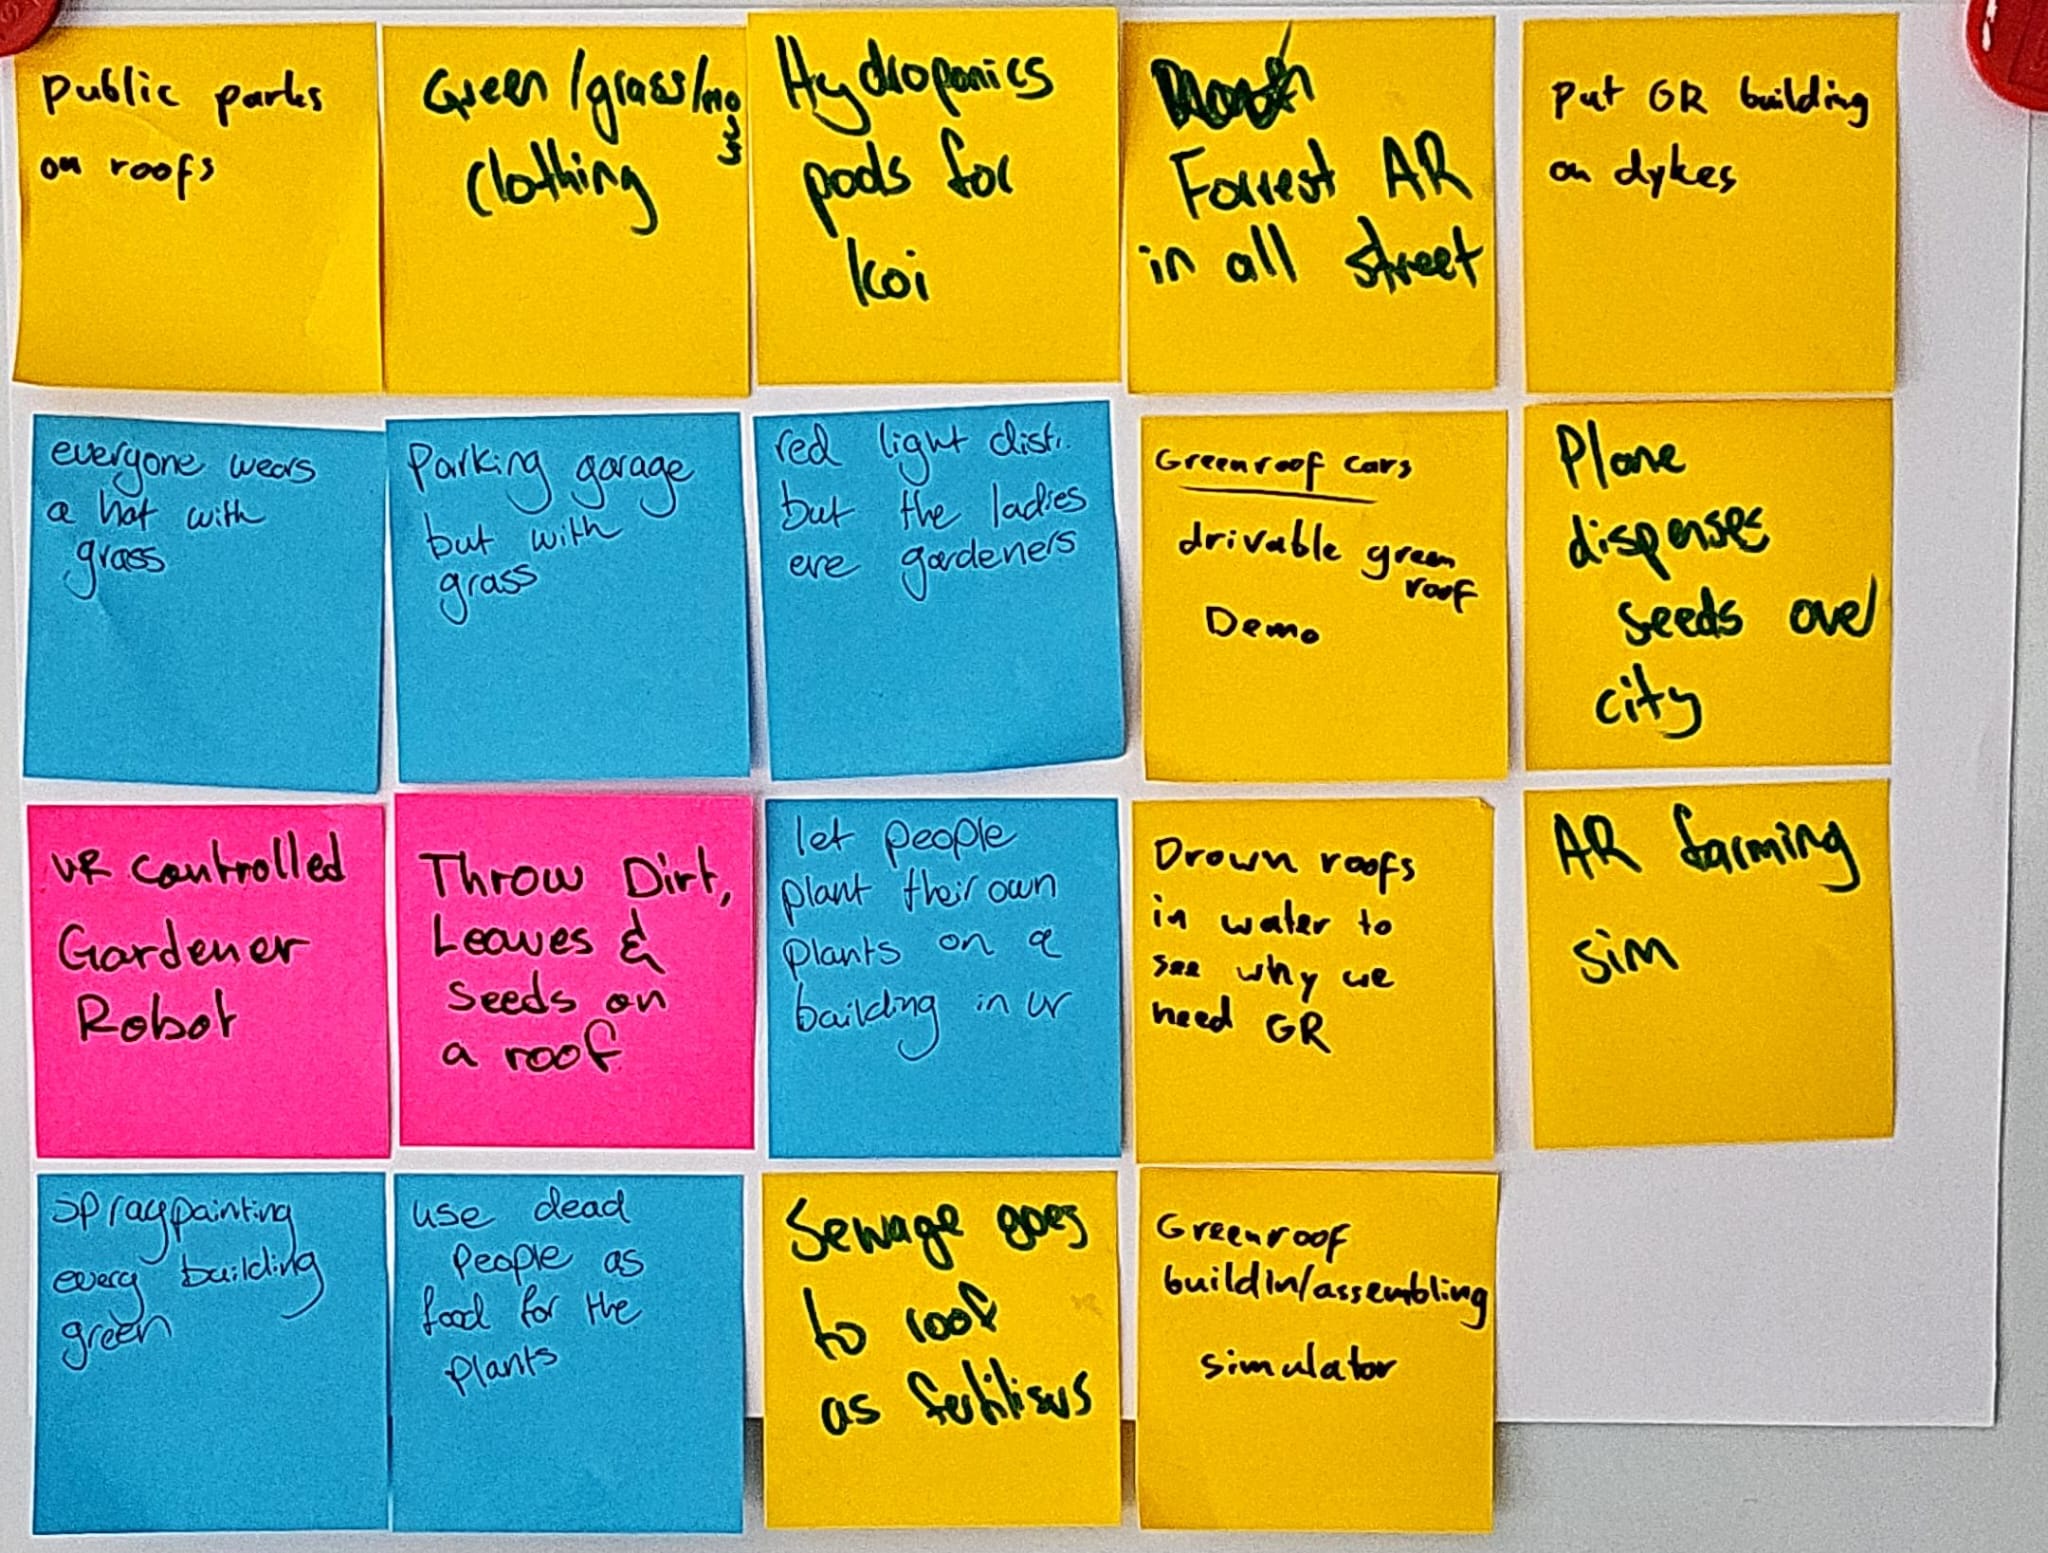 public parks
on roofs
Green/grass/moss
clothing
Hydroponics
pods for
koi
Forrest AR
in all street
put GR building
on dykes
everyone wears
a hat with
grass
Parking garage
but with
grass
red light distr.
but the ladies
are gardeners
Greenroof cars
drivable green
roof
Demo
Plane
dispenses
seeds over
city
VR controlled
Gardener
Robot
Throw Dirt,
Leaves &
seeds on
a roof
let people
plant their own
plants on a
building in vr
Drown roofs
in water to
see why we
need GR
AR farming
sim
spraypainting
every building
green
use dead
people as
food for the
plants
Sewage goes
to roof
as fertilisers
Greenroof
buildin/assembling
simulator